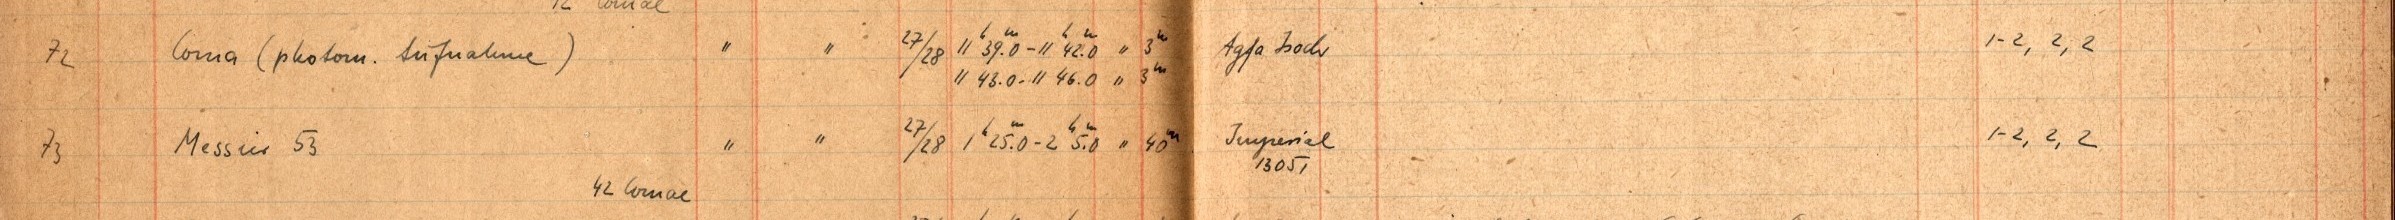 12 Comae
72 Coma (photom. Aufnahme) " " 27/28 11ʰ 39.0ᵐ - 11ʰ 42.0ᵐ " 3ᵐ Agfa Isochr 1-2, 2, 2
11 43.0 - 11 46.0 " 3ᵐ
73 Messier 53 " " 27/28 1ʰ 25.0ᵐ - 2ʰ 5.0ᵐ " 40ᵐ Imperial 1-2, 2, 2
13051
42 Comae